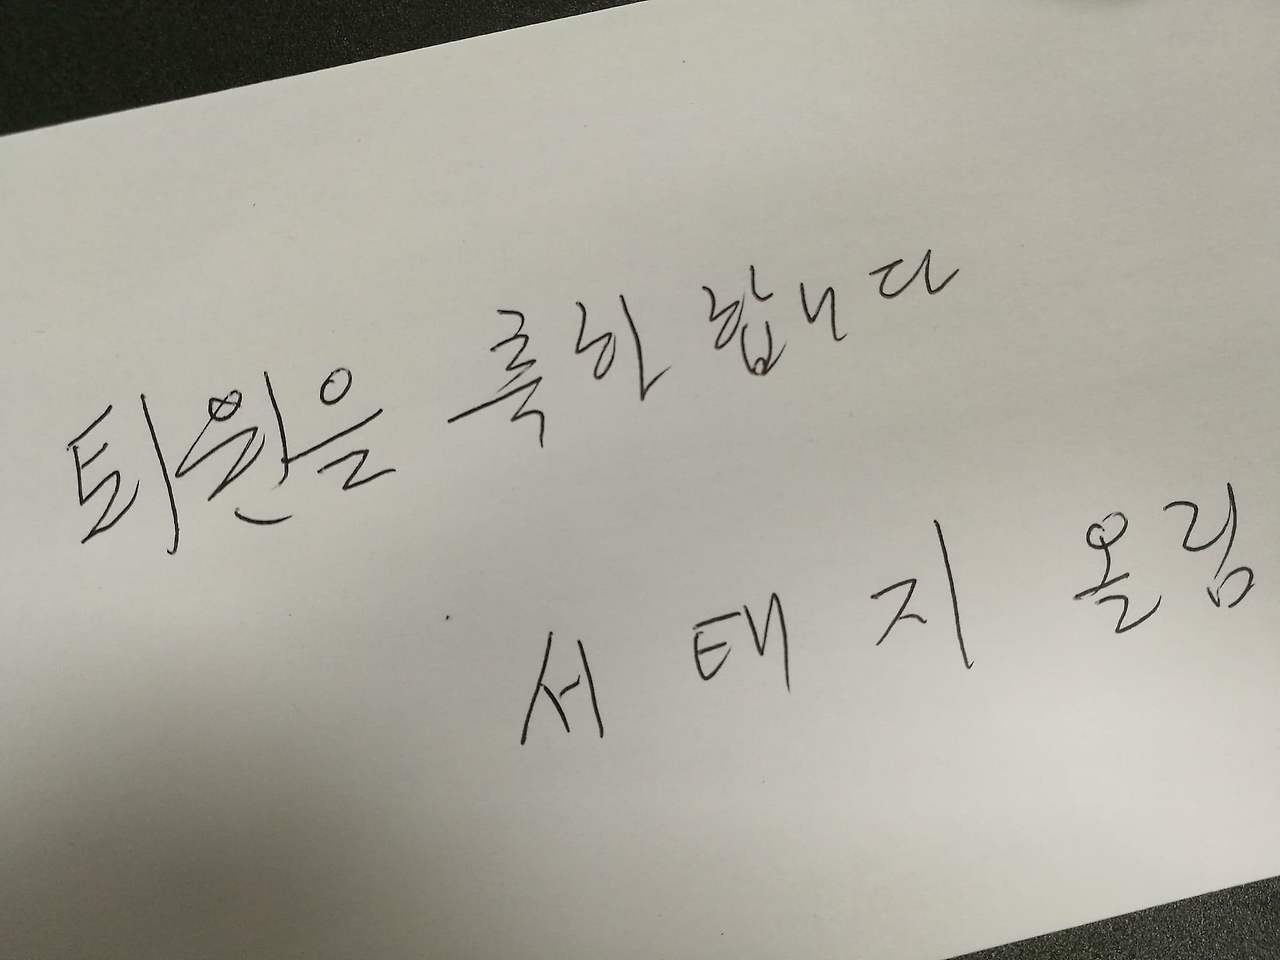 퇴원을 축하합니다
서태지 올림